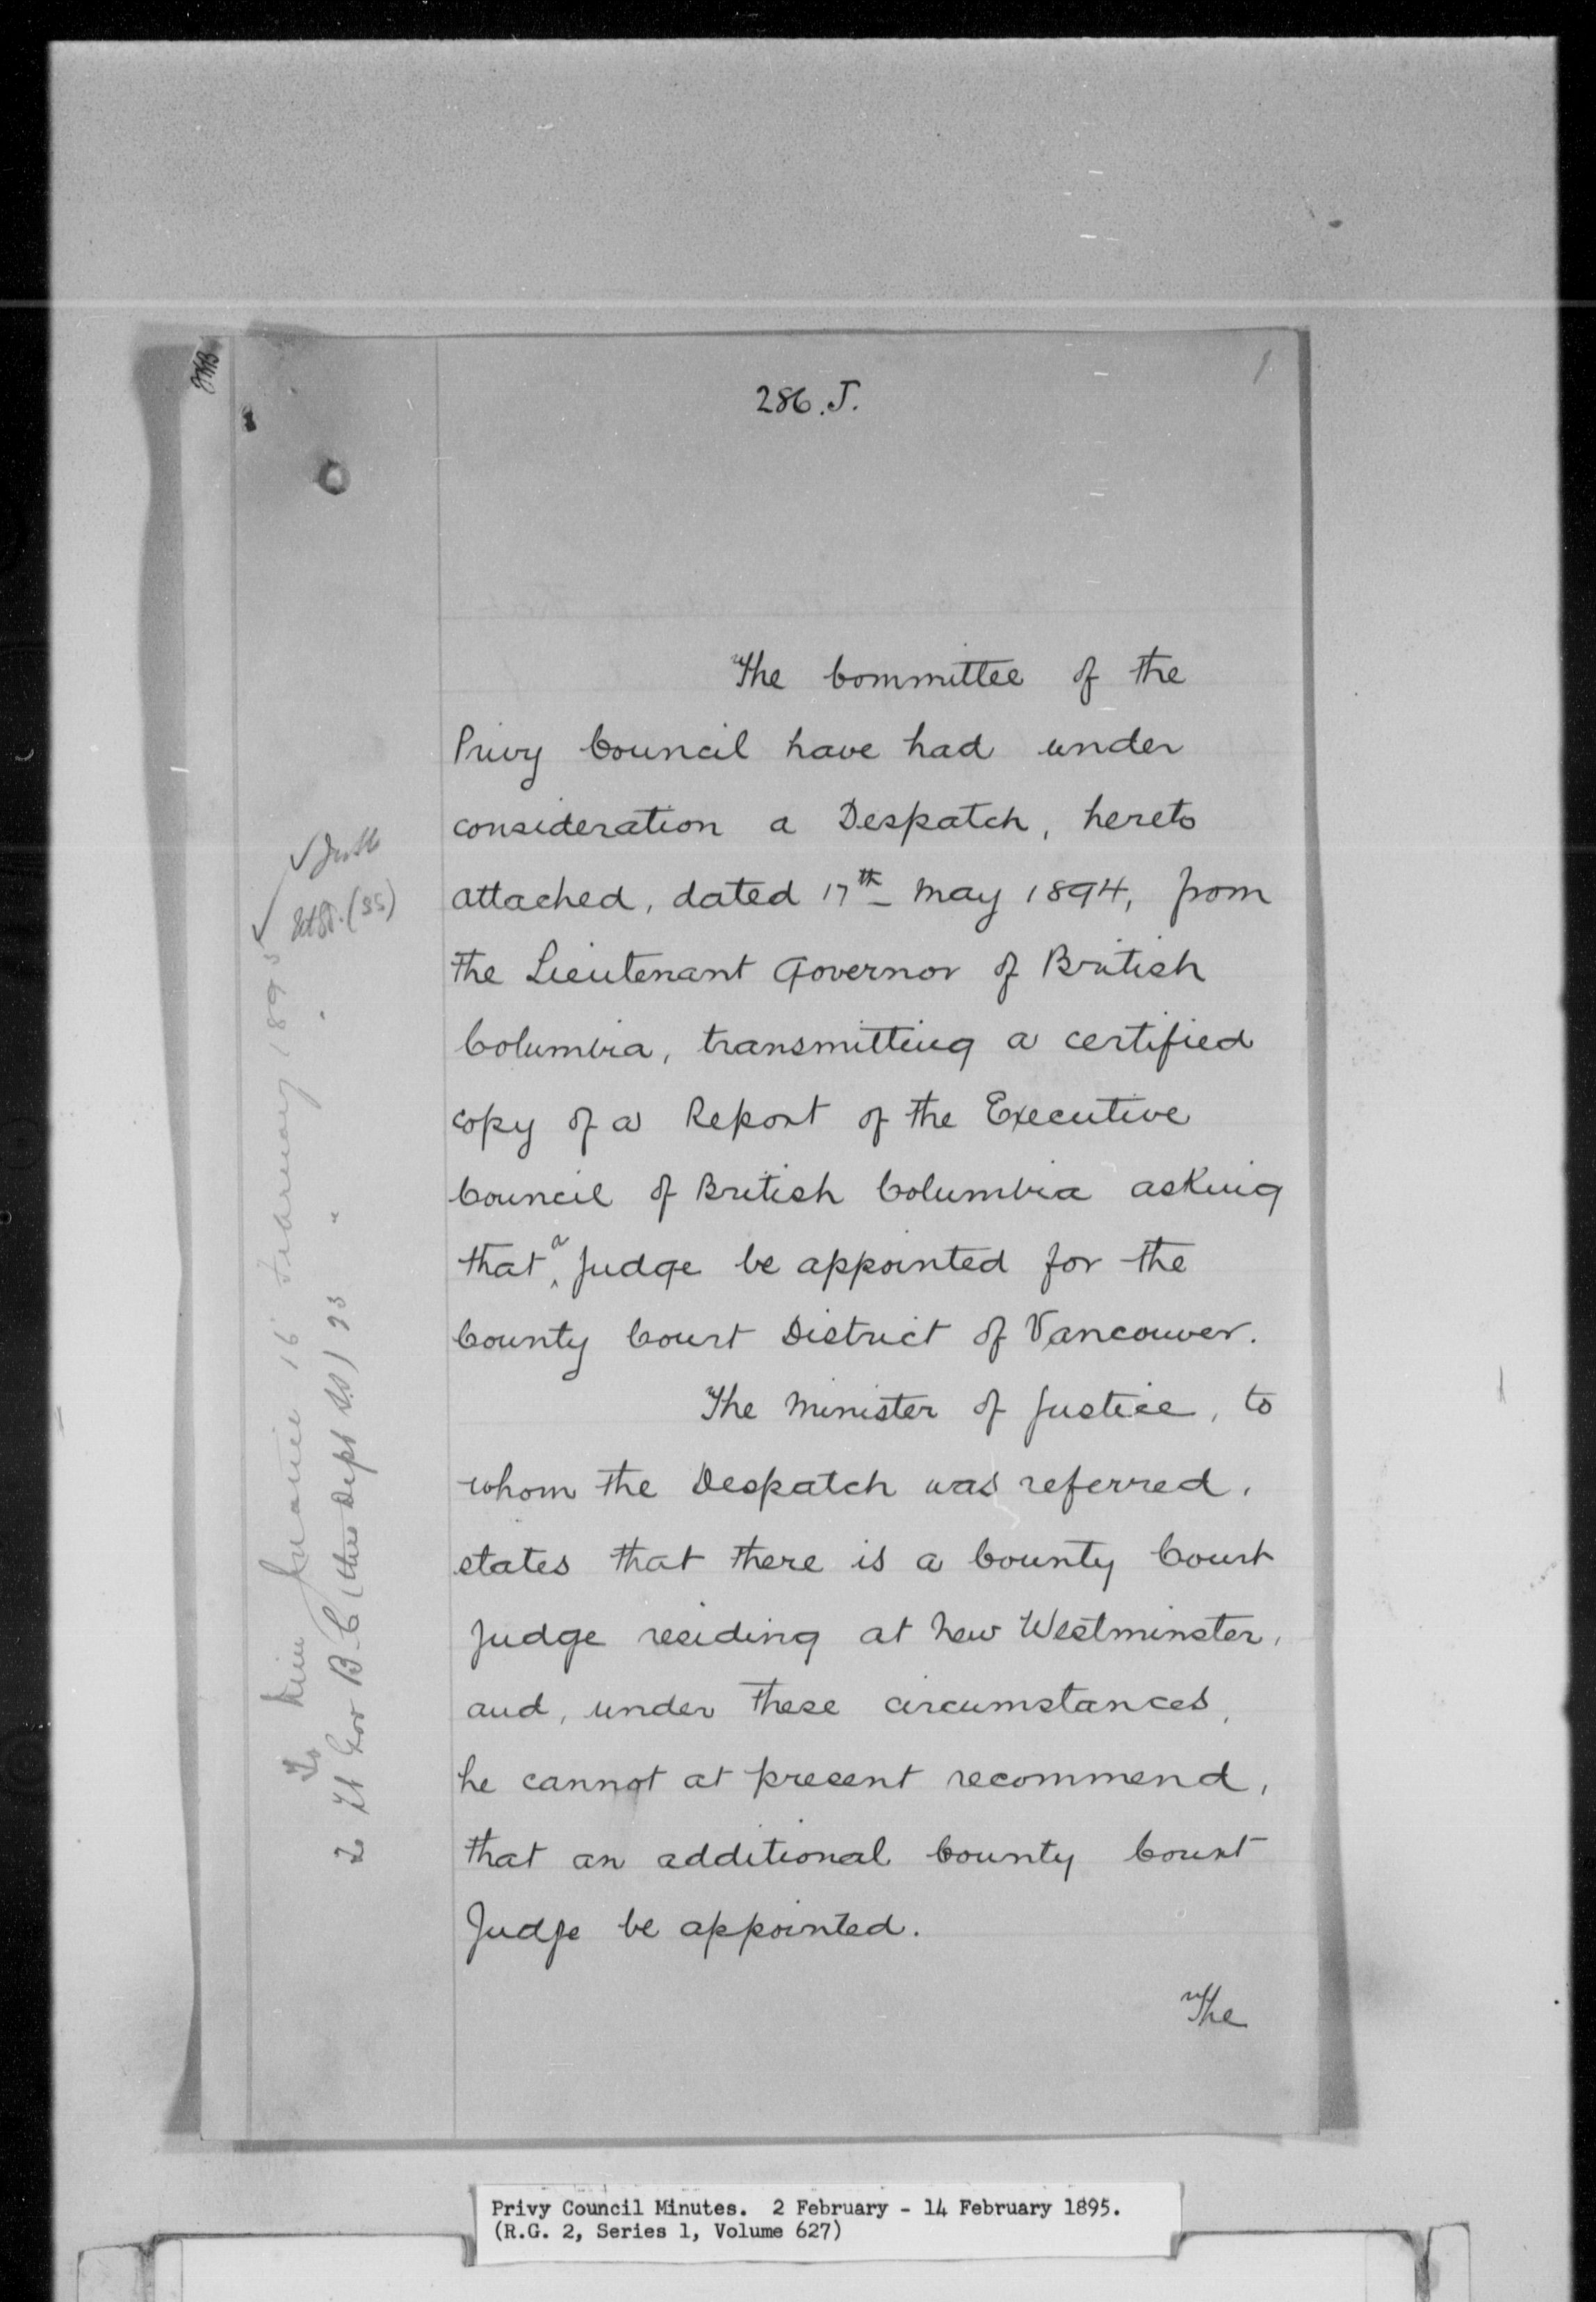 286. J.
The Committee of the
Privy Council have had under
consideration a Despatch, hereto
attached, dated 17th May 1894, from
the Lieutenant Governor of British
Columbia, transmitting a certified
copy of a Report of the Executive
Council of British Columbia asking
that a Judge be appointed for the
County Court District of Vancouver.
The Minister of Justice, to
whom the Despatch was referred,
states that there is a County Court
Judge residing at New Westminster,
and, under these circumstances,
he cannot at present recommend,
that an additional County Court
Judge be appointed.
The
To Min Justice 16 February 1895
To Lt Gov B.C (thro Dept S.S) " "
Privy Council Minutes. 2 February - 14 February 1895.
(R.G. 2, Series 1, Volume 627)